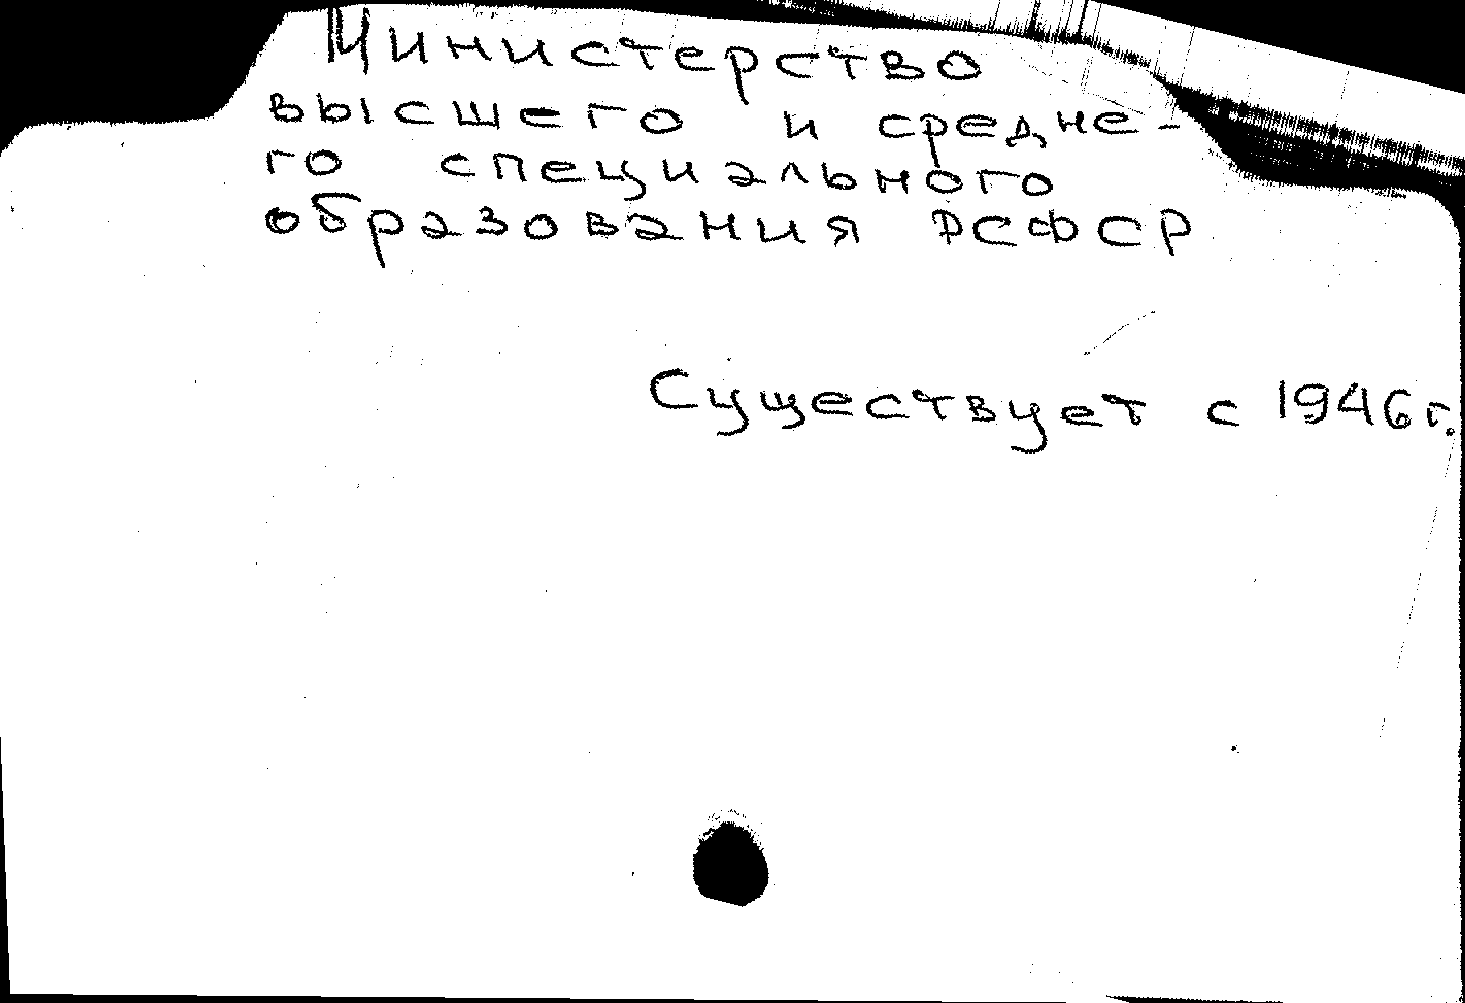 Министерство
высшего и средне-
го специального
образования РСФСР
Существует с 1946г.